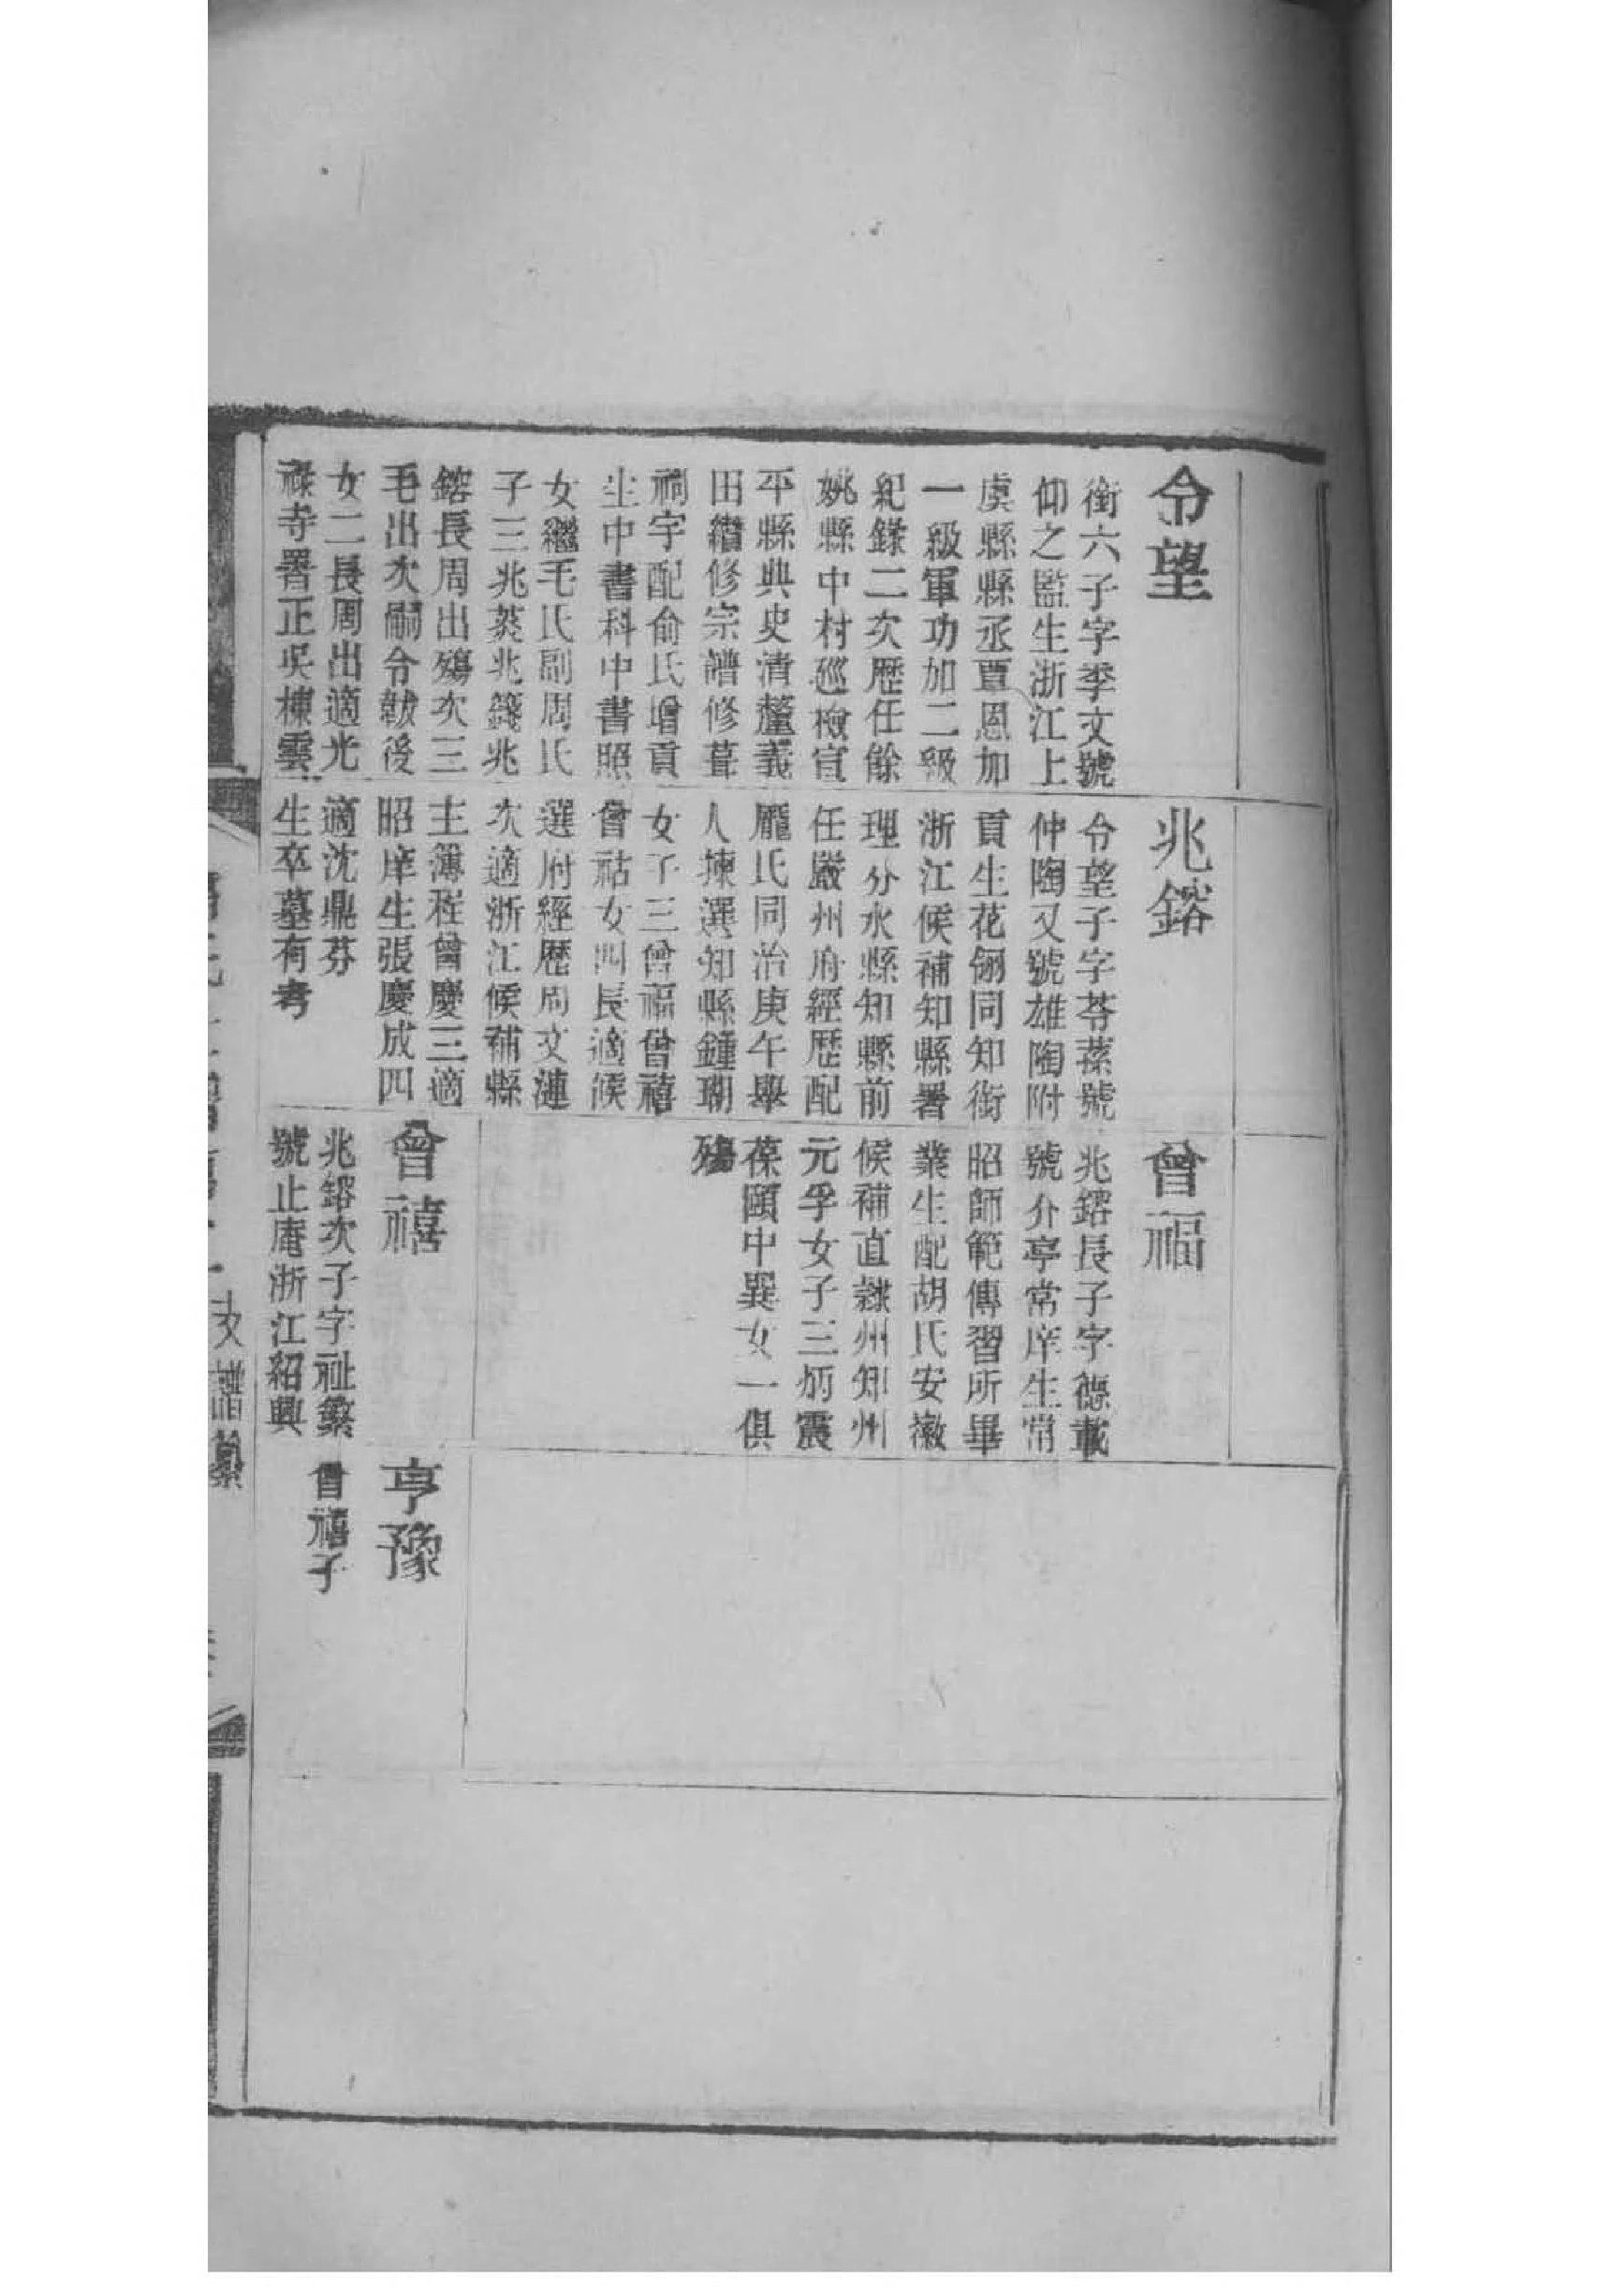 令望
衡六子字季文號
仰之監生浙江上
虞縣縣丞覃恩加
一級軍功加二級
紀錄二次歷任餘
姚縣中村巡檢宣
平縣典史清釐義
田纘修宗譜修葺
祠宇配俞氏增貢
生中書科中書照
女繼毛氏副周氏
子三兆蓁兆籛兆
鎔長周出殤次三
毛出次嗣令韍後
女二長周出適光
祿寺署正吳棟雲
兆鎔
令望子字苓蓀號
仲陶又號雄陶附
貢生花翎同知銜
浙江候補知縣署
理分水縣知縣前
任嚴州府經歷配
龐氏同治庚午舉
人揀選知縣鍾瑚
女子三曾福曾禧
曾祜女四長適候
選府經歷周文漣
次適浙江候補縣
主簿程曾慶三適
昭庠生張慶成四
適沈鼎芬
生卒墓有考
曾福
兆鎔長子字德載
號介亭常庠生常
昭師範傳習所畢
業生配胡氏安徽
候補直隸州知州
元孚女子三炳震
葆頤中巽女一俱
殤
曾禧
兆鎔次子字祉纂
號止庵浙江紹興
亨豫
曾禧子